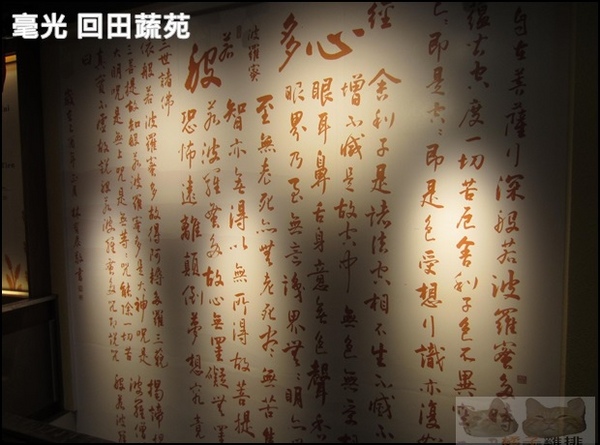 毫光 回田蔬苑
自在菩薩行深般若波羅蜜多時
蘊皆空度一切苦厄舍利子色不異
即是空〻即是色受想行識亦復
經
心
多
波羅蜜
若
般
舍利子是諸法空相不生不滅不
增不減是故空中無色無受
眼耳鼻舌身意無色聲香
眼界乃至無意識界無〻明
至無老死亦無老死盡無苦集
智亦無得以無所得故菩提
若波羅蜜多故心無罣礙無罣
恐怖遠離顛倒夢想究竟
三世諸佛
依般若波羅蜜多故得阿耨多羅三藐
三菩提故知般若波羅蜜多是大神咒是
大明咒是無上咒是無等〻咒能除一切苦
真實不虛故說般若波羅蜜多咒即說咒
曰
揭諦揭
波羅僧